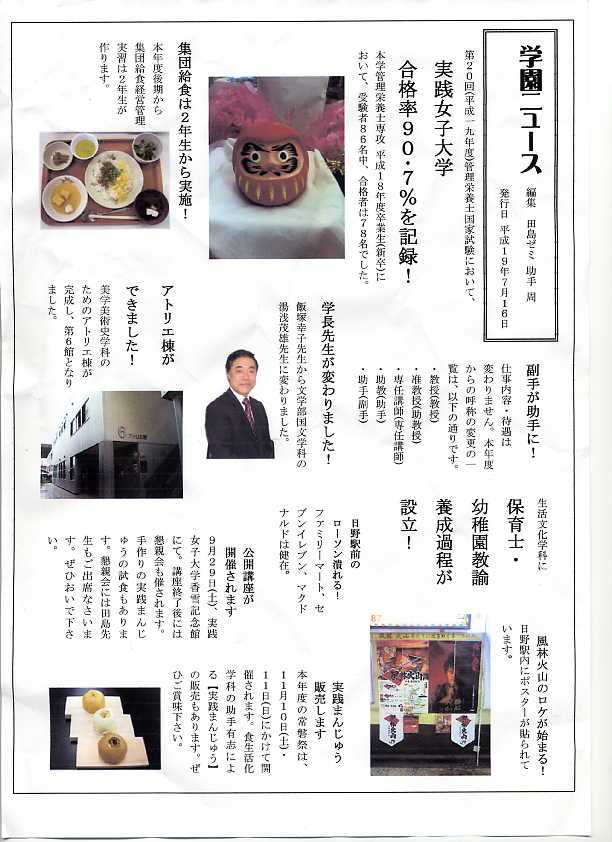 学園ニュース
編集　田島ゼミ　助手　周
発行日　平成19年7月16日
第20回(平成一九年度)管理栄養士国家試験において、
実践女子大学
合格率90・7％を記録！
本学管理栄養士専攻　平成18年度卒業生(新卒)に
おいて、受験者86名中、合格者は78名でした。
集団給食は2年生から実施！
本年度後期から
集団給食経営管理
実習は2年生が
作ります。
副手が助手に！
仕事内容・待遇は
変わりません。本年度
からの呼称の変更の一
覧は、以下の通りです。
・教授(教授)
・准教授(助教授)
・専任講師(専任講師)
・助教(助手)
・助手(副手)
学長先生が変わりました！
飯塚幸子先生から文学部国文学科の
湯浅茂雄先生に変わりました。
アトリエ棟が
できました！
美学美術史学科の
ためのアトリエ棟が
完成し、第6館となり
ました。
6
生活文化学科に
保育士・
幼稚園教諭
養成過程が
設立！
日野駅前の
ローソン潰れる！
ファミリーマート、セ
ブンイレブン、マクド
ナルドは健在。
公開講座が
開催されます
9月29日(土)、実践
女子大学香雪記念館
にて。講座終了後には
懇親会も催されます。
手作りの実践まんじ
ゅうの試食もありま
す。懇親会には田島先
生もご出席なさいま
す。ぜひおいで下さ
い。
風林火山のロケが始まる！
日野駅内にポスターが貼られて
います。
87
風林火山
実践まんじゅう
販売します
本年度の常磐祭は、
11月10日(土)・
11日(日)にかけて開
催されます。食生活化
学科の助手有志によ
る【実践まんじゅう】
の販売もあります。ぜ
ひご賞味下さい。